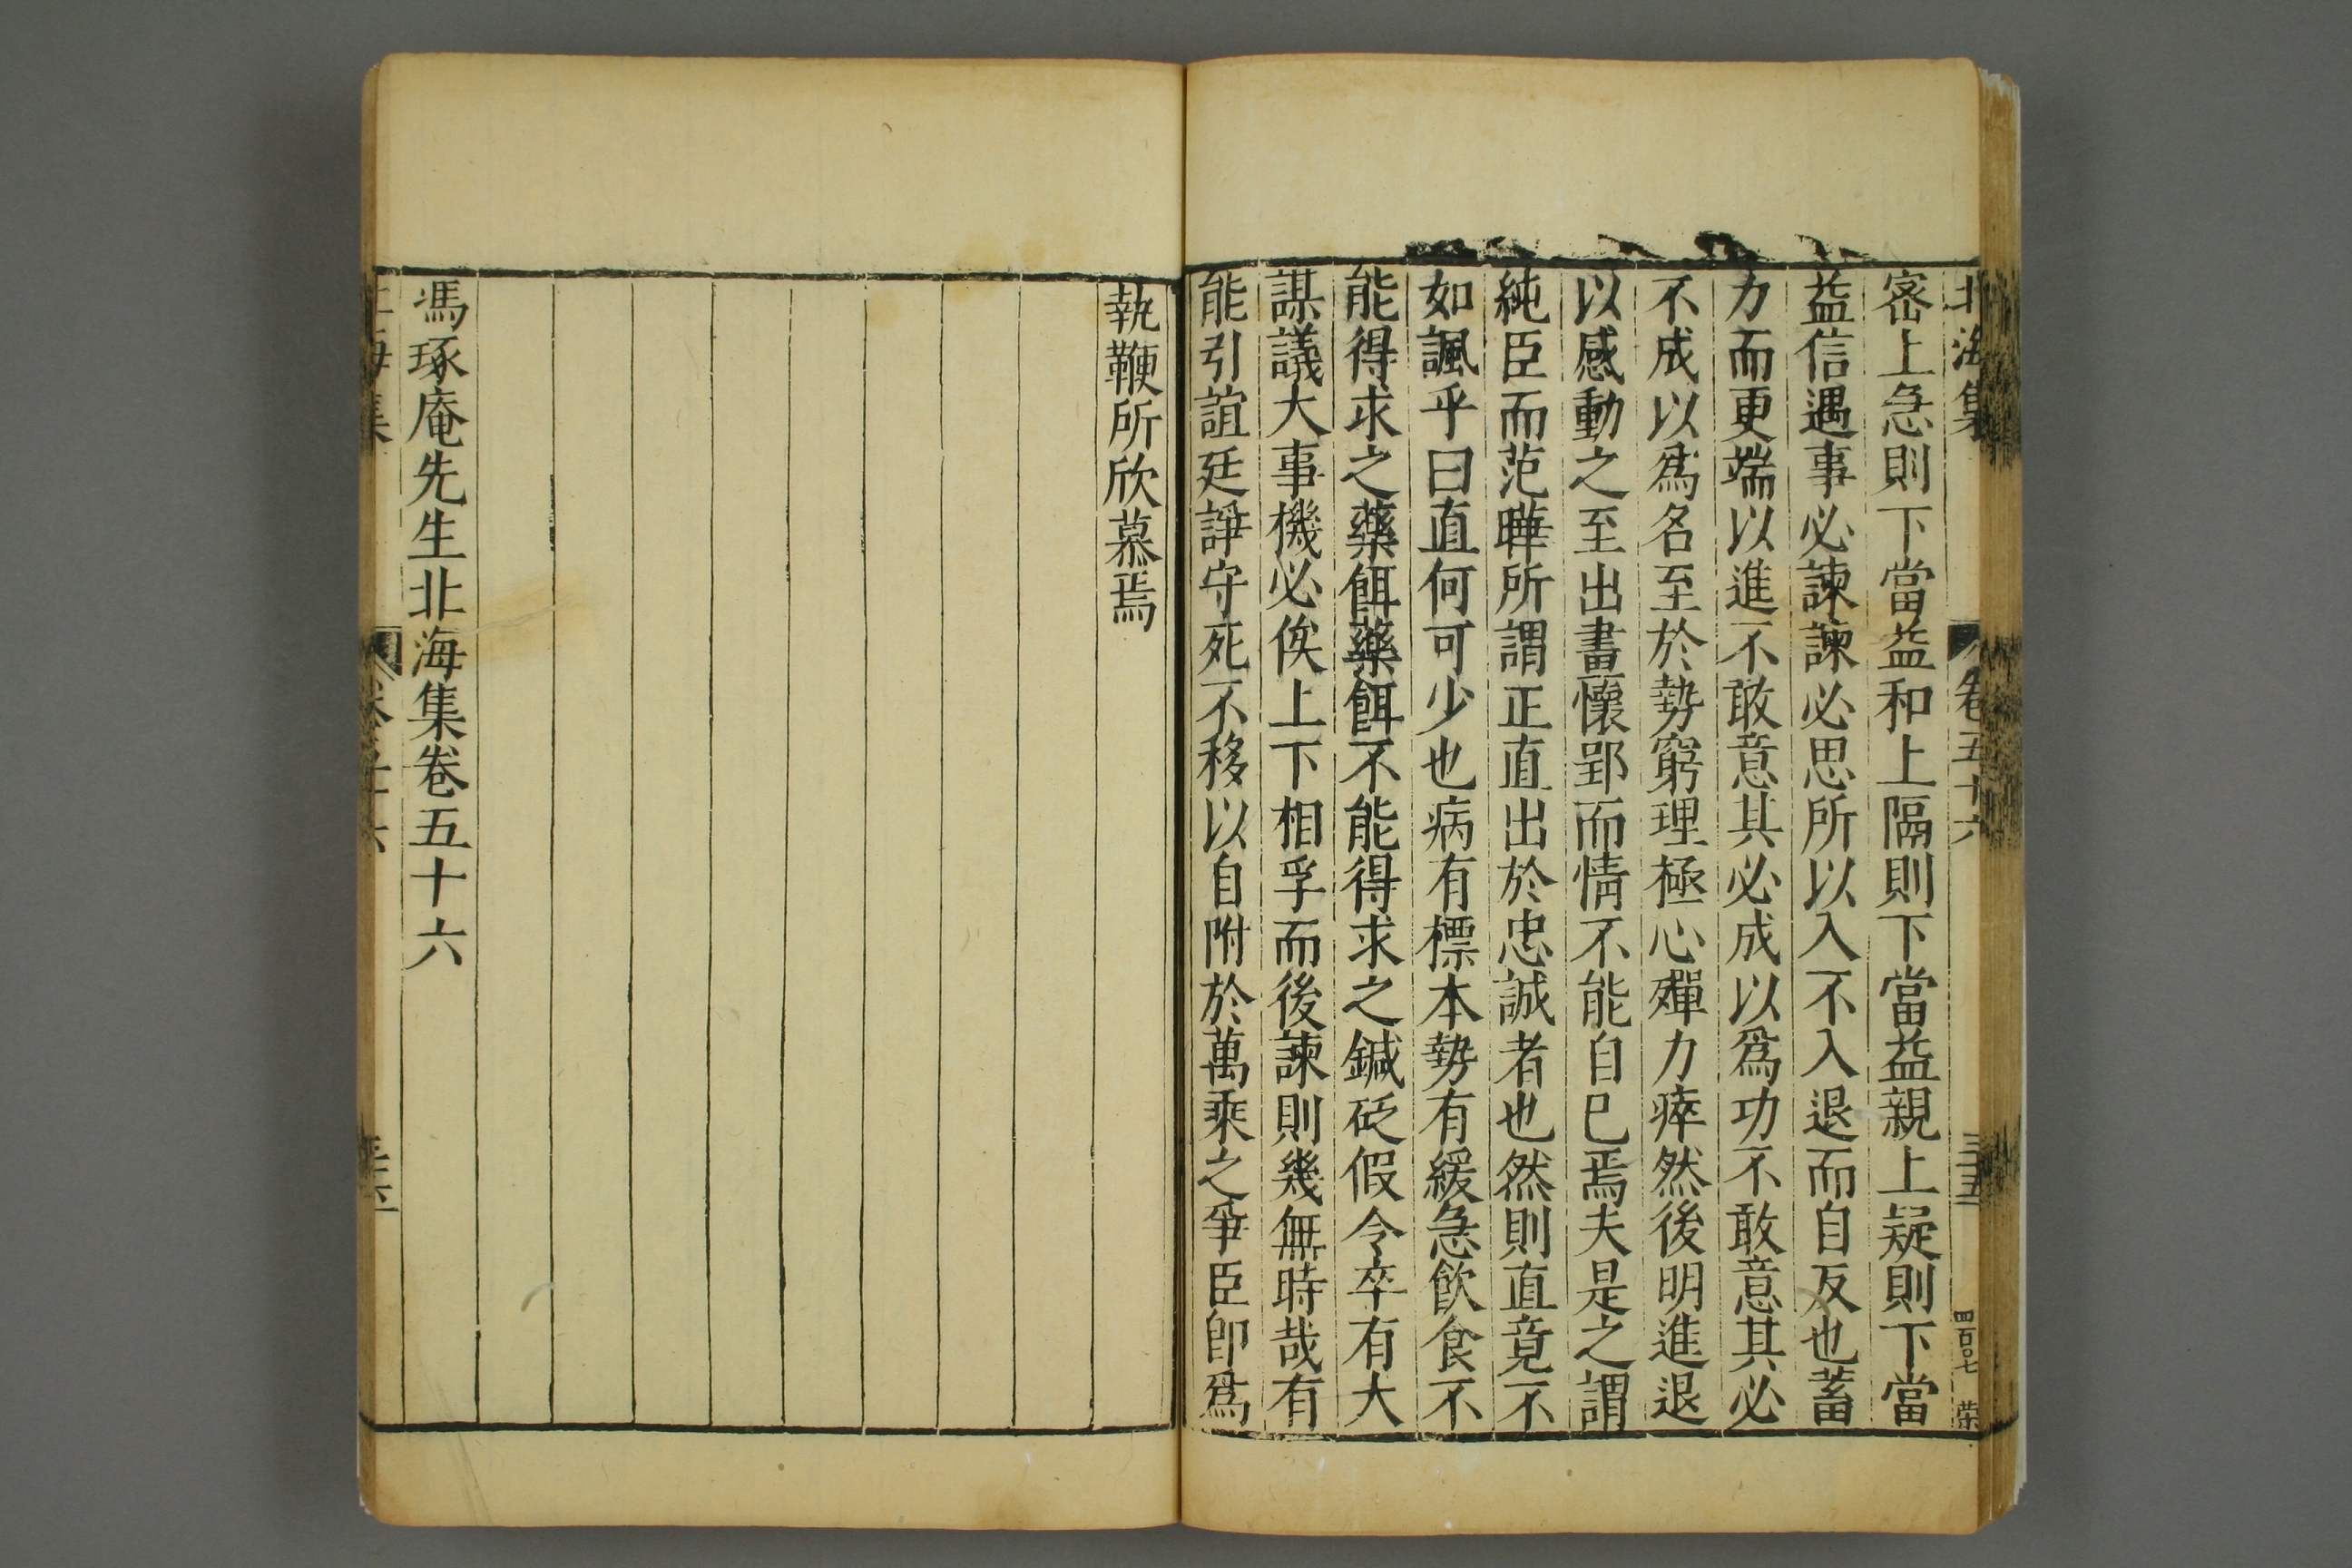 北海集 卷五十六 三十五 四百〇七 荣
宻上急則下當益和上隔則下當益親上疑則下當
益信遇事必諫諫必思所以入不入退而自反也蓄
力而更端以進不敢意其必成以爲功不敢意其必
不成以爲名至於勢窮理極心殫力瘁然後明進退
以感動之至出晝懷郢而情不能自已焉夫是之謂
純臣而范曄所謂正直出於忠誠者也然則直竟不
如諷乎曰直何可少也病有標本勢有緩急飲食不
能得求之藥餌藥餌不能得求之鍼砭假令卒有大
謀議大事機必俟上下相孚而後諫則幾無時哉有
能引誼廷諍守死不移以自附於萬乘之爭臣卽爲
執鞭所欣慕焉
馮琢庵先生北海集卷五十六
海集